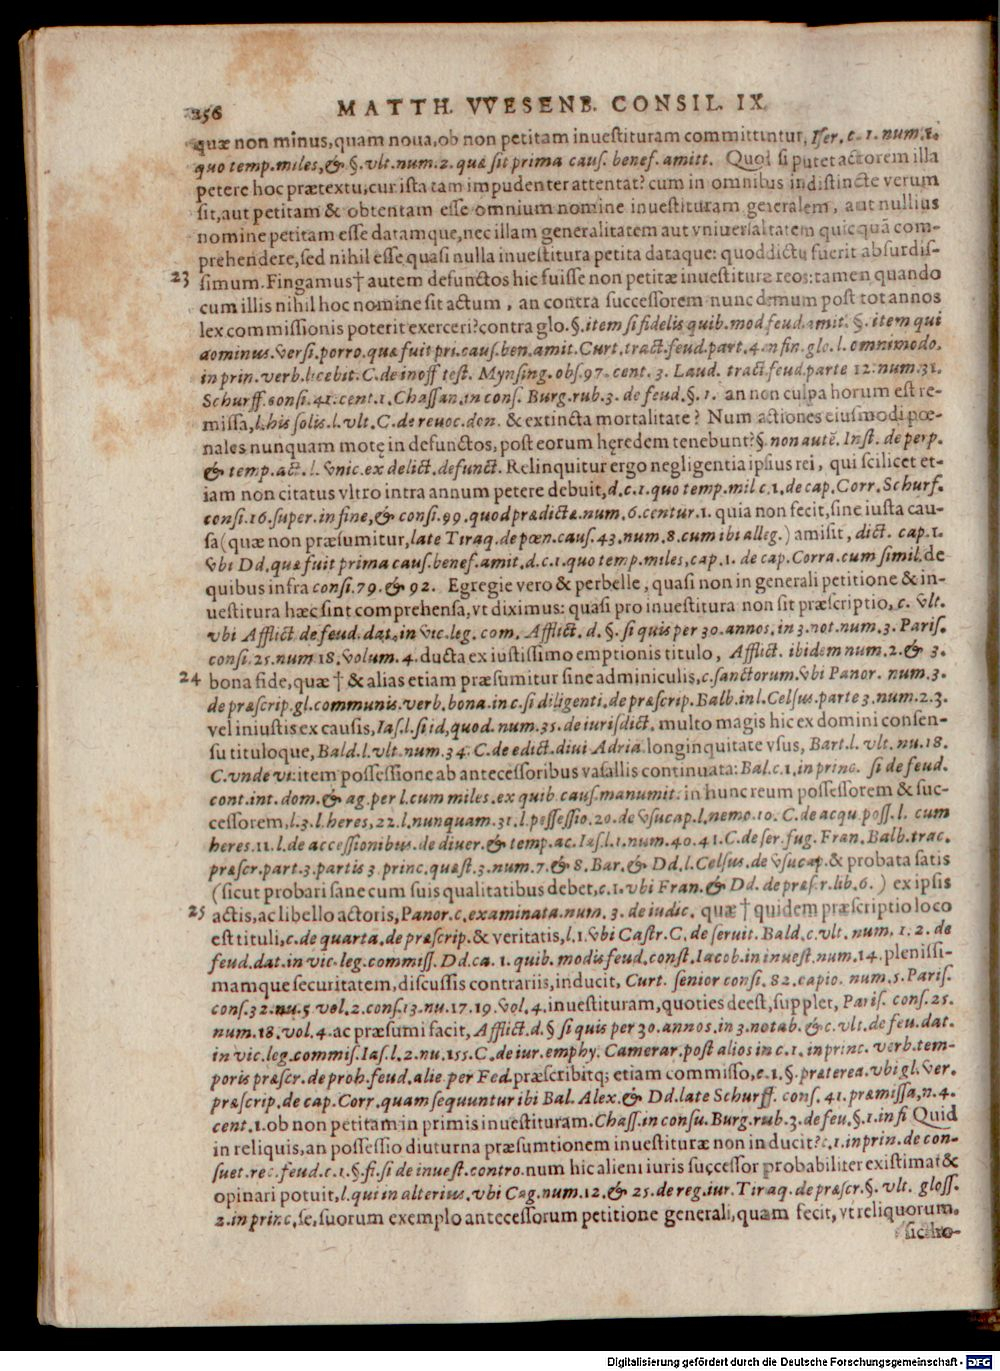 256 MATTH. VVESENB. CONSIL. IX.
quæ non minus, quam noua, ob non petitam inuestituram committuntur, Iser. c. 1. num. 1.
quo temp. miles, & §. vlt. num. 2. quæ sit prima caus. benef. amitt. Quod si putet actorem illa
petere hoc prætextu, cur ista tam impudenter attentat? cum in omnibus indistincte verum
sit, aut petitam & obtentam esse omnium nomine inuestituram generalem, aut nullius
nomine petitam esse datamque, nec illam generalitatem aut vniuersaltatem quicquã com-
prehendere, sed nihil esse, quasi nulla inuestitura petita dataque: quod dictu fuerit absurdis-
23 simum. Fingamus† autem defunctos hic fuisse non petitæ inuestituræ reos: tamen quando
cum illis nihil hoc nomine sit actum, an contra successorem nunc demum post tot annos
lex commissionis poterit exerceri? contra glo. §. item si fidelis quib. mod feud. amit. §. item qui
dominus. versi. porro. quæ fuit pri. caus. ben. amit. Curt. tract. feud. part. 4. in fin. glo. l. omnimodo.
in prin. verb. licebit. C. de inoff test. Mynsing. obs. 97. cent. 3. Laud. tract. feud. parte 12. num. 31.
Schurff. consi. 41. cent. 1. Chassan. in cons. Burg. rub. 3. de feud. §. 1. an non culpa horum est re-
missa, l. his solis. l. vlt. C. de reuoc. don. & extincta mortalitate? Num actiones eiusmodi pœ-
nales nunquam motę in defunctos, post eorum hęredem tenebunt? §. non autē. Inst. de perp.
& temp. act. l. vnic. ex delict. defunct. Relinquitur ergo negligentia ipsius rei, qui scilicet et-
iam non citatus vltro intra annum petere debuit, d. c. 1. quo temp. mil c. 1. de cap. Corr. Schurf.
consi. 16. super. in fine, & consi. 99. quod prædictæ. num. 6. centur. 1. quia non fecit, sine iusta cau-
sa (quæ non præsumitur, late Tiraq. de pœn. caus. 43. num. 8. cum ibi alleg.) amisit, dict. cap. 1.
vbi Dd. quæ fuit prima caus. benef. amit. d. c. 1. quo temp. miles, cap. 1. de cap. Corra. cum simil. de
quibus infra consi. 79. & 92. Egregie vero & perbelle, quasi non in generali petitione & in-
uestitura hæc sint comprehensa, vt diximus: quasi pro inuestitura non sit præscriptio, c. vlt.
vbi Afflict. de feud. dat. in vic. leg. com. Afflict. d. §. si quis per 30. annos. in 3. not. num. 3. Paris.
consi. 25. num. 18. volum. 4. ducta ex iustissimo emptionis titulo, Afflict. ibidem num. 2. & 3.
24 bona fide, quæ † & alias etiam præsumitur sine adminiculis, c. sanctorum. vbi Panor. num. 3.
de præscrip. gl. communis. verb. bona. in c. si diligenti. de præscrip. Balb. in l. Celsus. parte 3. num. 2. 3.
vel iniustis ex causis, Ias. l. si id, quod. num. 35. de iurisdict. multo magis hic ex domini consen-
su tituloque, Bald. l. vlt. num. 34. C. de edict. diui Adria. longinquitate vsus, Bart. l. vlt. nu. 18.
C. vnde vi: item possessione ab antecessoribus vasallis continuata: Bal. c. 1. in princ. si de feud.
cont. int. dom. & ag. per l. cum miles. ex quib. caus. manumit. in hunc reum possessorem & suc-
cessorem, l. 3. l. heres, 22. l. nunquam. 31. l. possessio. 20. de vsucap. l. nemo. 10. C. de acqu poss. l. cum
heres. 11. l. de accessionibus. de diuer. & temp. ac. Ias. l. 1. num. 40. 41. C. de ser. fug. Fran. Balb. trac.
præscr. part. 3. partis 3 princ. quæst. 3. num. 7. & 8. Bar. & Dd. l. Celsus. de vsucap. & probata satis
(sicut probari sane cum suis qualitatibus debet, c. 1. vbi Fran. & Dd. de præscr. lib. 6.) ex ipsis
25 actis, ac libello actoris, Panor. c. examinata. num. 3. de iudic. quæ † quidem præscriptio loco
est tituli, c. de quarta. de præscrip. & veritatis, l. 1. vbi Castr. C. de seruit. Bald. c. vlt. num. 1. 2. de
feud. dat. in vic. leg. commiss. Dd. ca. 1. quib. modis feud. const. Iacob. in inuest. num. 14. plenissi-
mamque securitatem, discussis contrariis, inducit, Curt. senior consi. 82. capio. num. 5. Paris.
cons. 32. nu. 5. vol. 2. cons. 13. nu. 17. 19. vol. 4. inuestituram, quoties deest, supplet, Paris. cons. 25.
num. 18. vol. 4. ac præsumi facit, Afflict. d. § si quis per 30. annos. in 3. notab. & c. vlt. de feu. dat.
in vic. leg. commis. Ias. l. 2. nu. 155. C. de iur. emphy. Camerar. post alios in c. 1. in princ. verb. tem-
poris præscr. de proh. feud. alie. per Fed. præscribitq; etiam commisso, c. 1. §. præterea. vbi gl. ver.
præscrip. de cap. Corr. quam sequuntur ibi Bal. Alex. & Dd. late Schurff. cons. 41. præmissa, n. 4.
cent. 1. ob non petitam in primis inuestituram. Chass. in consu. Burg. rub. 3. de feu. §. 1. in fi Quid
in reliquis, an possessio diuturna præsumtionem inuestituræ non inducit? c. 1. in prin. de con-
suet. rec. feud. c. 1. §. fi. si de inuest. contro. num hic alieni iuris successor probabiliter existimat &
opinari potuit, l. qui in alterius. vbi Cag. num. 12. & 25. de reg. iur. Tiraq. de præscr. §. vlt. gloss.
2. in princ, se, suorum exemplo antecessorum petitione generali, quam fecit, vt reliquorum,
sic ho-
Digitalisierung gefördert durch die Deutsche Forschungsgemeinschaft - DFG